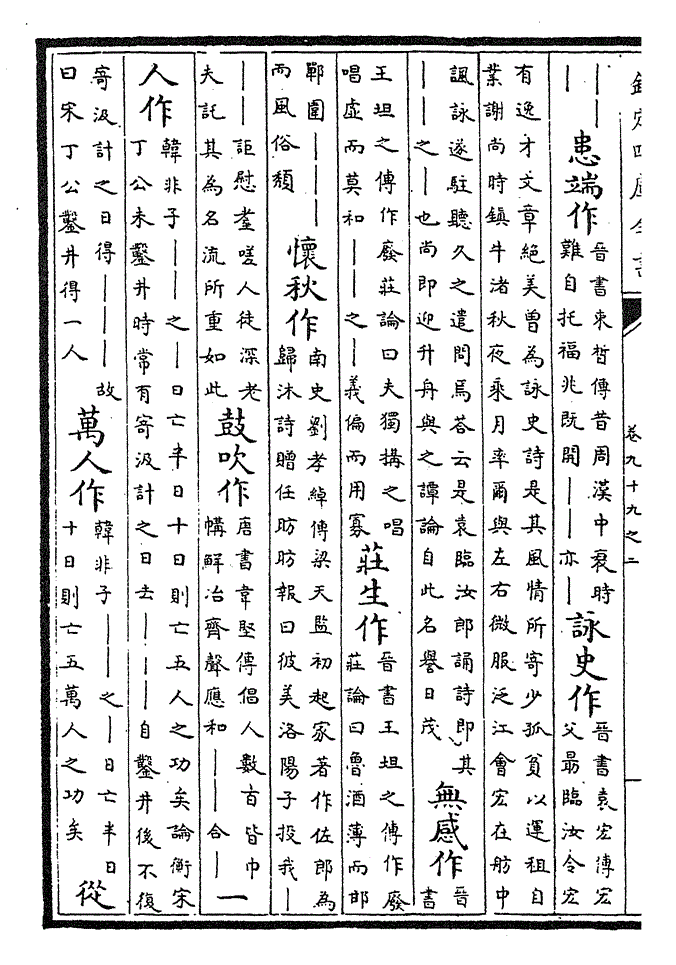 欽定四庫全書
卷九十九之二
——
——
患端作
晉書束晳傳昔周漢中衰時
難自托福兆既開——亦—
詠史作
晉書袁宏傳宏
父朂臨汝令宏
有逸才文章絕美曽為詠史詩是其風情所寄少孤貧以運租自
業謝尚時鎮牛渚秋夜乘月率爾與左右微服泛江會宏在舫中
諷詠遂駐聽久之遣問焉荅云是袁臨汝郎誦詩即其
——之—也尚即迎升舟與之譚論自此名譽日茂
無感作
晉
書
王坦之傳作廢莊論曰夫獨搆之唱
唱虛而莫和——之—義偏而用寡
莊生作
晉書王坦之傳作廢
莊論曰魯酒薄而邯
鄲圍———
而風俗頽
懷秋作
南史劉孝綽傳梁天監初起家著作佐郎為
歸沐詩贈任昉昉報曰彼美洛陽子投我—
——詎慰耋嗟人徒深老
夫託其為名流所重如此
鼓吹作
唐書韋堅傳倡人數百皆巾
幘鮮冶齊聲應和——合—
一
人作
韓非子——之—日亡半日十日則亡五人之功矣論衡宋
丁公未鑿井時常有寄汲計之日去———自鑿井後不復
寄汲計之日得———故
曰宋丁公鑿井得一人
萬人作
韓非子——之—日亡半日
十日則亡五萬人之功矣
從